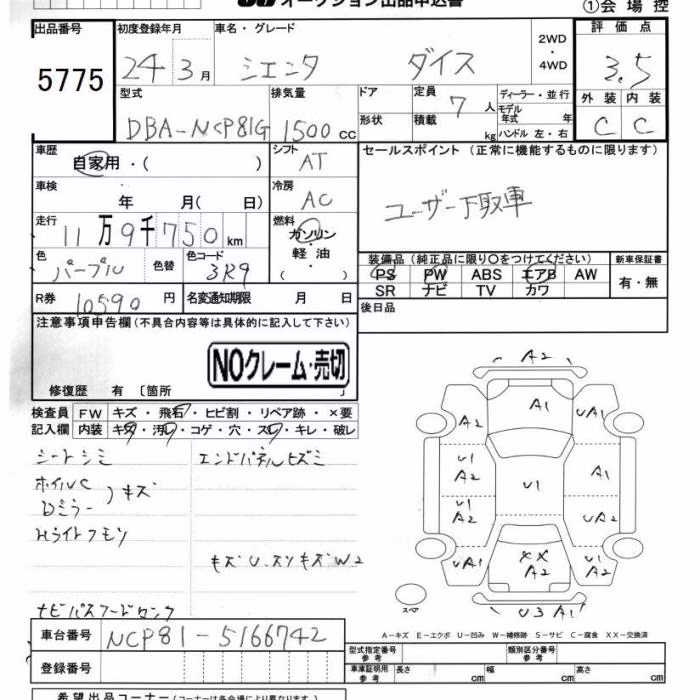 オークション出品申込書
①会場控
出品番号
5775
初度登録年月
24年3月
車名・グレード
シエンタ ダイス
2WD
・
4WD
評価点
3.5
外装 内装
C C
型式
DBA-NCP81G
排気量
1500cc
ドア
形状
定員
7人
積載
kg
ディーラー・並行
モデル
年式 年
ハンドル 左・右
車歴
自家用・( )
シフト
AT
セールスポイント (正常に機能するものに限ります)
ユーザー下取車
車検
年 月( 日)
冷房
AC
走行
11万9千750km
燃料
ガソリン
軽油
( )
色
パープル
色替
色コード
3R9
装備品(純正品に限り○をつけてください)
新車保証書
PS PW ABS エアB AW
SR ナビ TV カワ
有・無
R券
10590円
名変通知期限 月 日
後日品
注意事項申告欄(不具合内容等は具体的に記入して下さい)
NOクレーム・売切
修復歴 有〔箇所 〕
検査員
記入欄
FW キズ・飛石・ヒビ割・リペア跡・×要
内装 キズ・汚レ・コゲ・穴・スレ・キレ・破レ
シートシミ
エンドパネルヒズミ
ホイルC
Dミラー
)キズ
Hライトクモリ
キズU.スリキズW2
ナビパスワードロック
A2
A2 A1 UA1
U1
A2
A1
U1
U1
A2
UA2
UA1
XX
A2
U1
A2
スペア
U3 A1
A-キズ E-エクボ U-凹み W-補修跡 S-サビ C-腐食 XX-交換済
車台番号
NCP81-5166742
登録番号
型式指定番号
参考
類別区分番号
参考
車庫証明用
参考
長さ cm
幅 cm
高さ cm
希望出品コーナー(コーナーは各会場により異なります)